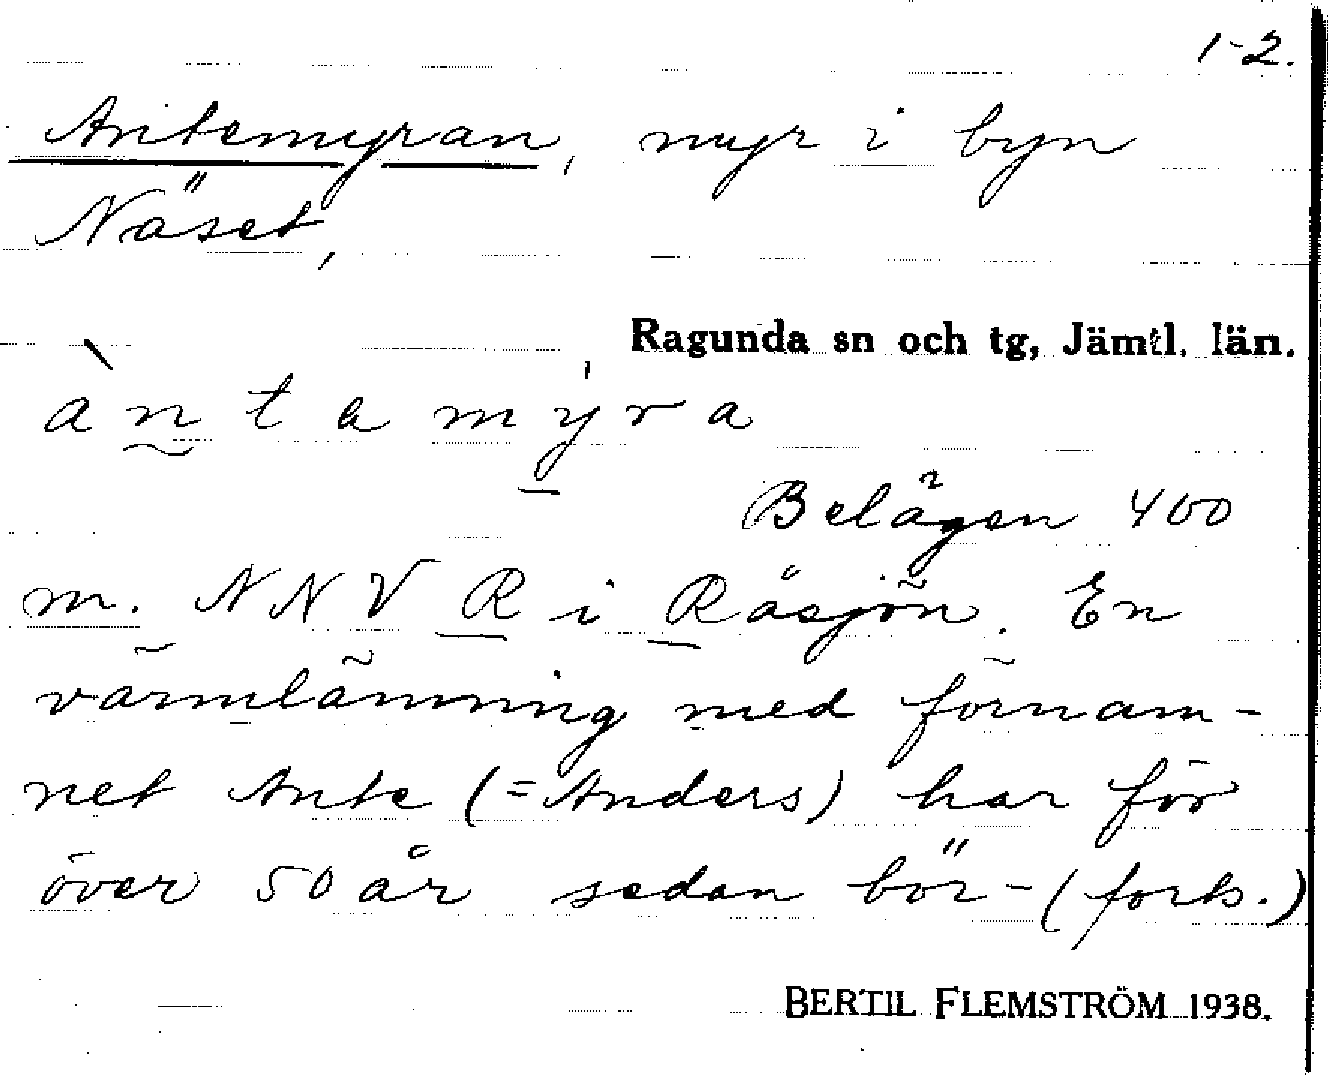 1-2.
Antemyran, myr i byn
Näset,
Ragunda sn och tg, Jämtl. län.
àn̰tamy̠ra
Belägen 400
m. NNV R i Råsjön. En
värmlänning med förnam-
net Ante (=Anders) har för
över 50 år sedan bör- (forts.)
BERTIL FLEMSTRÖM 1938.